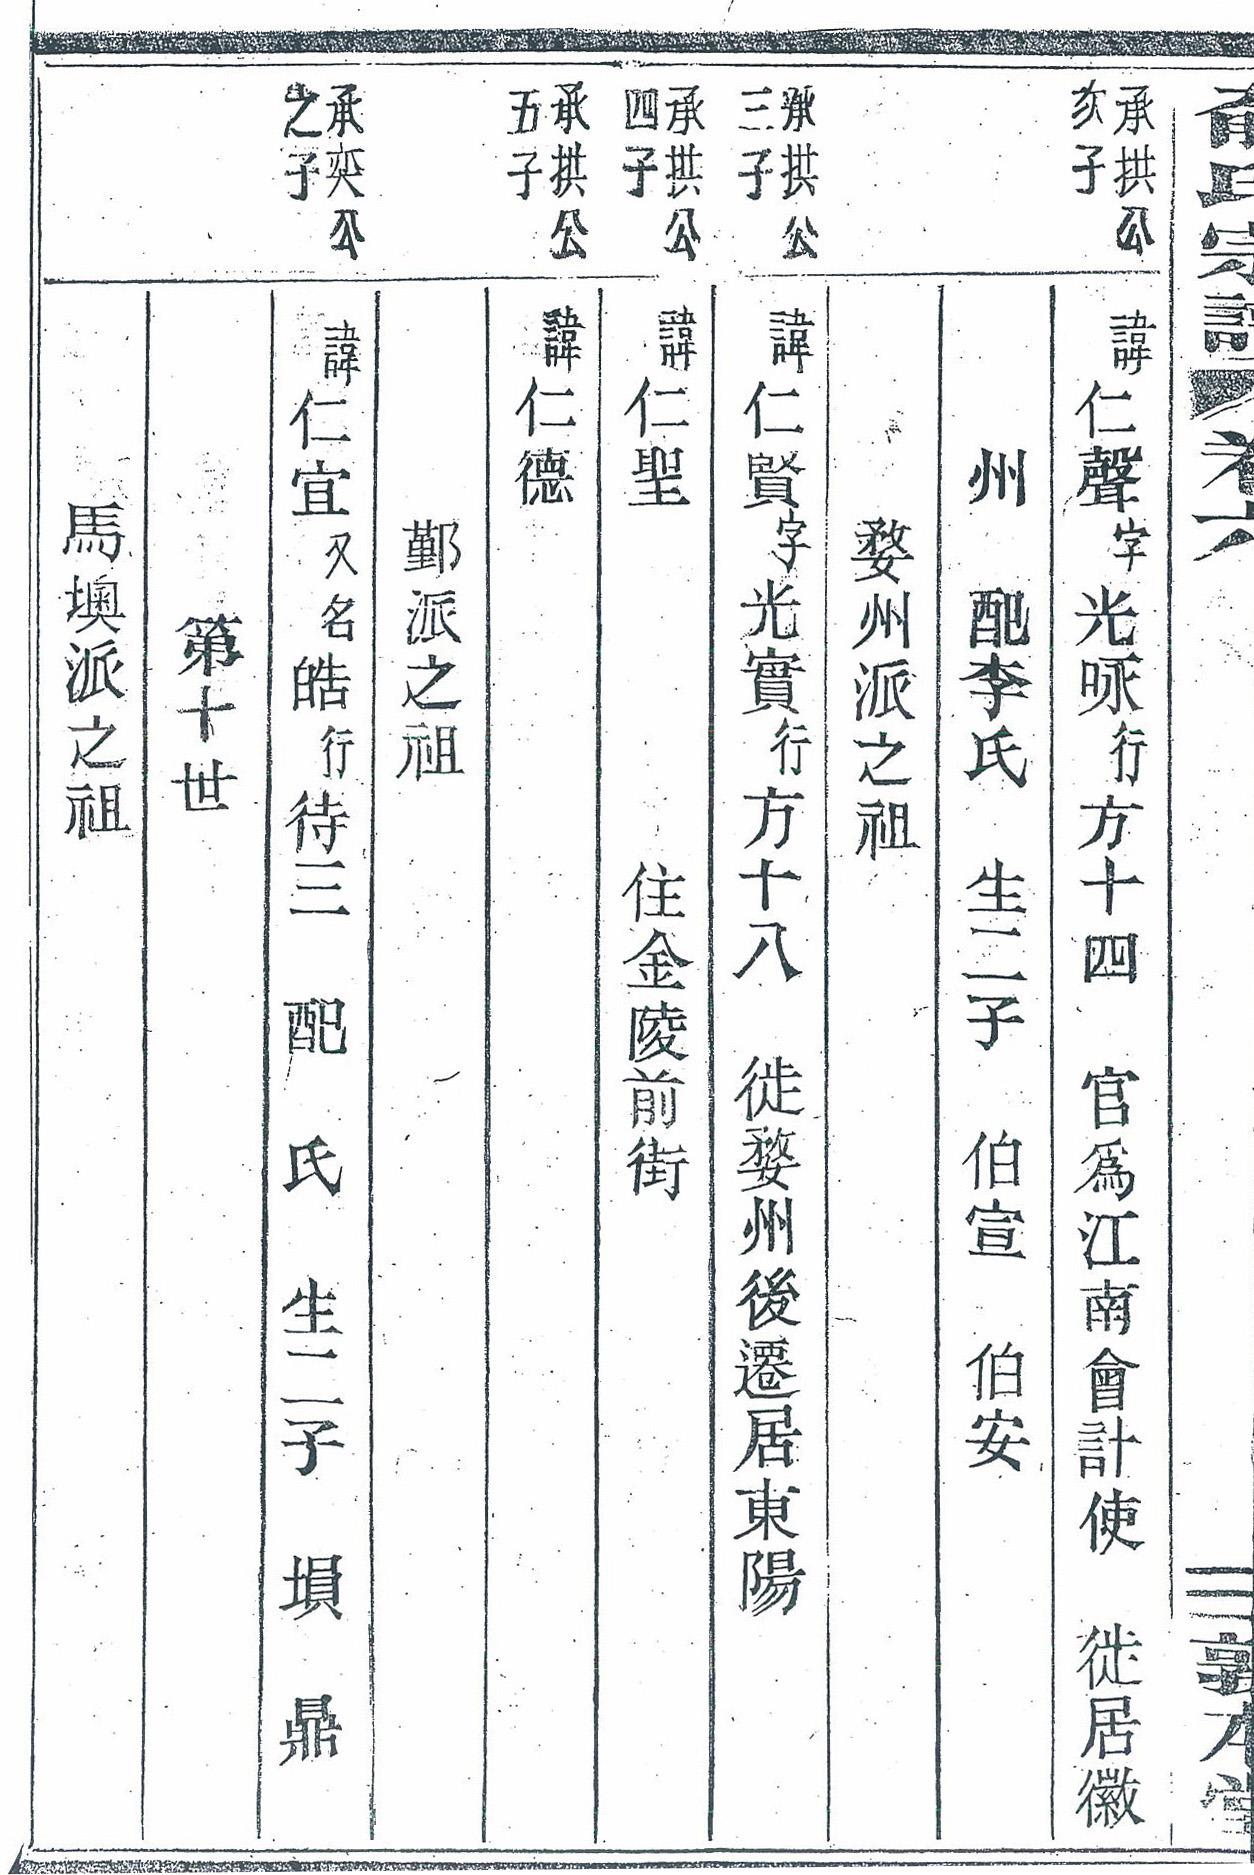 俞氏宗譜 卷六 三 敦本堂
承拱公
次子
諱仁聲字光咏行方十四 官爲江南會計使 徙居徽
州 配李氏 生二子 伯宣 伯安
婺州派之祖
承拱公
三子
諱仁賢字光實行方十八 徙婺州後遷居東陽
承拱公
四子
諱仁聖 住金陵前街
承拱公
五子
諱仁德
鄞派之祖
承奕公
之子
諱仁宜又名皓行待三 配 氏 生二子 塤 鼎
第十世
馬墺派之祖